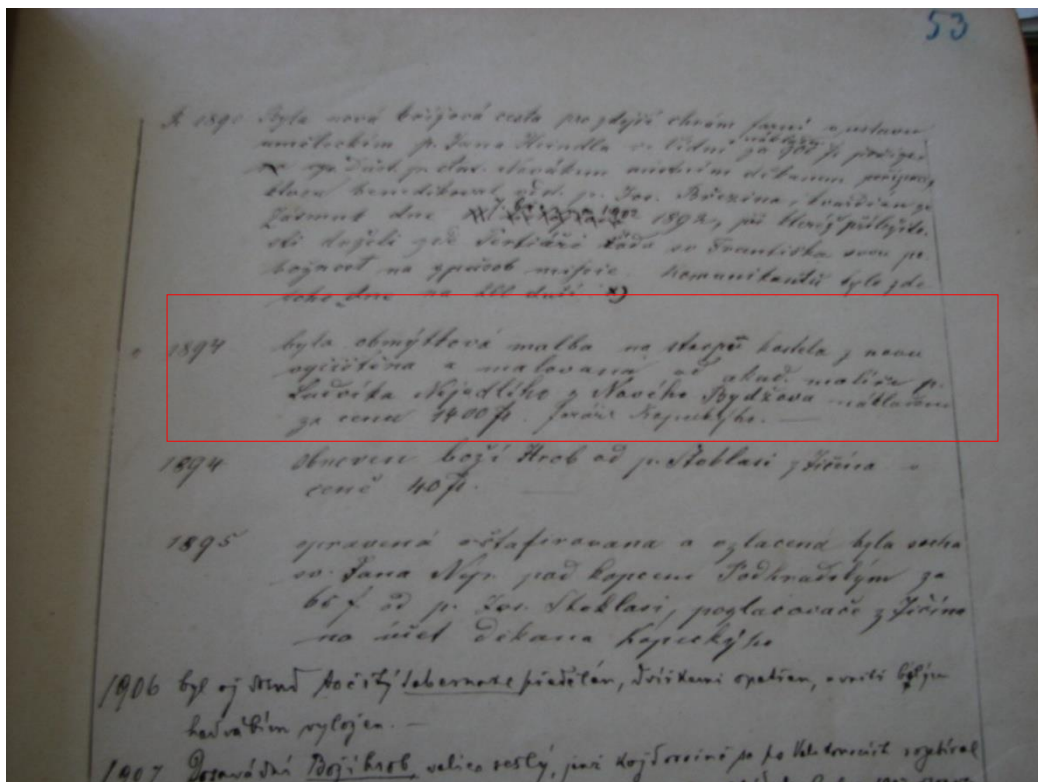 53
R. 1890 Byla nová křížová cesta pro zdejší chrám farní z ustavu
uměleckým p. Jana Heindla ve Vídni nákladem za 900 fl.
děkanem
která benedikoval p. Jos. Březina, kvardián ze
Zásmuk dne 1892, při kteréž příležito-
sti drželi zde Terciáři řádu sv. Františka svou po-
božnost na způsob missie. Komunikantů bylo zde
toho dne na duší x)
" 1894 byla obmýtková malba na stropě kostela z novu
vyčištěna a malovaná od akad. malíře p.
Ludvíka Nejedlého z Nového Bydžova nákladem
za cenu 1400 fl. Kopeckýho. —
1894 obnoven boží Hrob od p. Stoklasi z Jičína v
ceně 40 fl. —
1895 opravená vštafirovana a ozlacená byla socha
sv. Jana Nep. pod kopcem Podhradským za
65 f od p. Jos. Stoklasi, pozlacovače z Jičína
na účet děkana Kopeckýho
1906 byl předělán, dvířkami opatřen, uvnitř bílým
hedvábím vyložen. —
1907 Dosavádní Boží hrob, velice sešlý, jenž